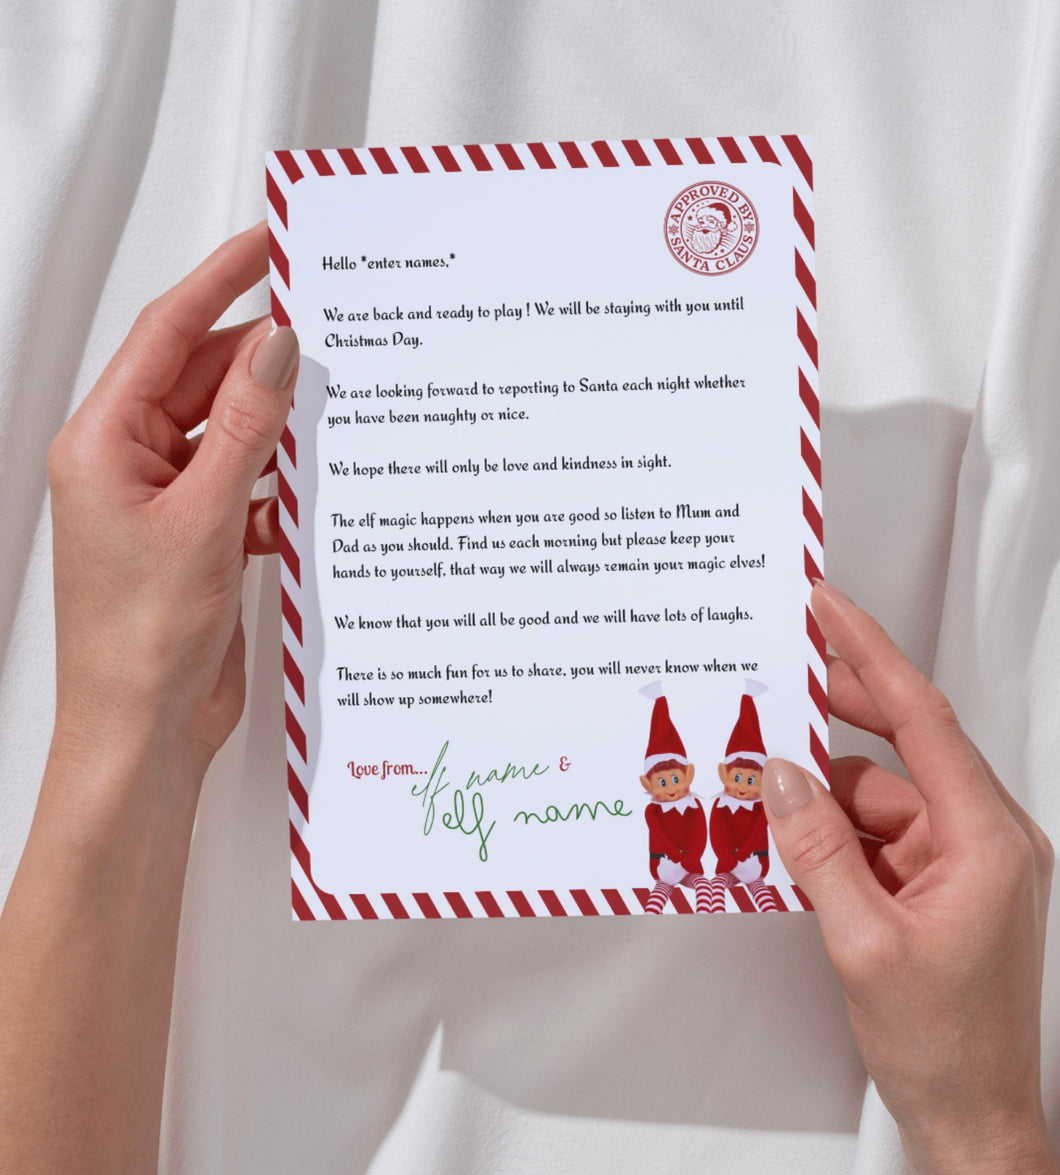 APPROVED BY
SANTA CLAUS
Hello *enter names,*
We are back and ready to play ! We will be staying with you until
Christmas Day.
We are looking forward to reporting to Santa each night whether
you have been naughty or nice.
We hope there will only be love and kindness in sight.
The elf magic happens when you are good so listen to Mum and
Dad as you should. Find us each morning but please keep your
hands to yourself, that way we will always remain your magic elves!
We know that you will all be good and we will have lots of laughs.
There is so much fun for us to share, you will never know when we
will show up somewhere!
Love from... elf name &
elf name